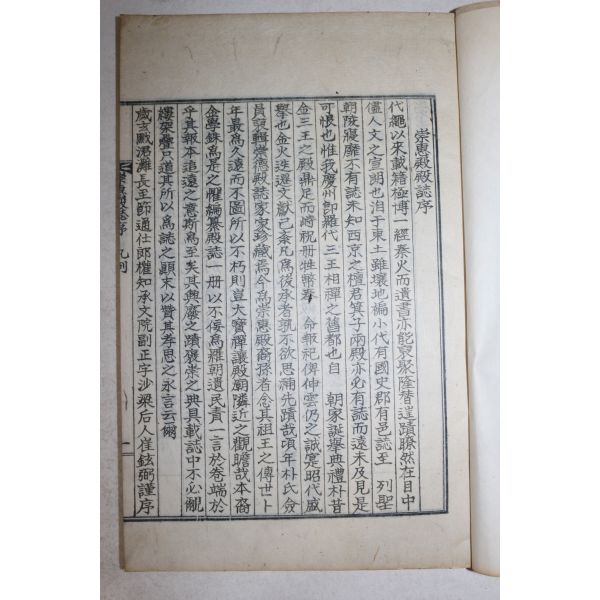 崇惠殿殿誌序
代繩以來載籍極博一經秦火而遺書亦能裒聚隆替達蹟瞭然在目中
儘人文之宣朗也洎于東土雖壤地褊小代有國史郡有邑誌至 列聖
朝陵寢靡不有誌未知西京之檀君箕子兩殿亦必有誌而遠未及見是
可恨也惟我慶州卽羅代三王相禪之舊都也自 朝家誕舉典禮朴昔
金三王之殿鼎足而峙祝冊牲幣奉 命報祀俾伸雲仍之誠寔昭代盛
擧也金火迭遷文獻已紊凡爲後承者孰不欲思補先蹟哉頃年朴氏僉
員謏輯崇德殿誌家家珍藏焉今爲崇惠殿裔孫者念其祖王之傳世卜
年最爲久遠而不圖所以不朽則豈大寶禪讓殿廟隣近之觀瞻哉本裔
金學銖爲是之懼編纂殿誌一冊以不佞爲羅朝遺民責一言於卷端於
乎其報本追遠之意斯爲至矣其興廢之蹟褒崇之典具載誌中不必覼
縷架疊只道其所以爲誌之顚末以贊其孝思之永言云爾
歲玄黓涒灘長至節通仕郞權知承文院副正字沙梁后人崔鉉弼謹序
崇惠殿誌序 凡例 一